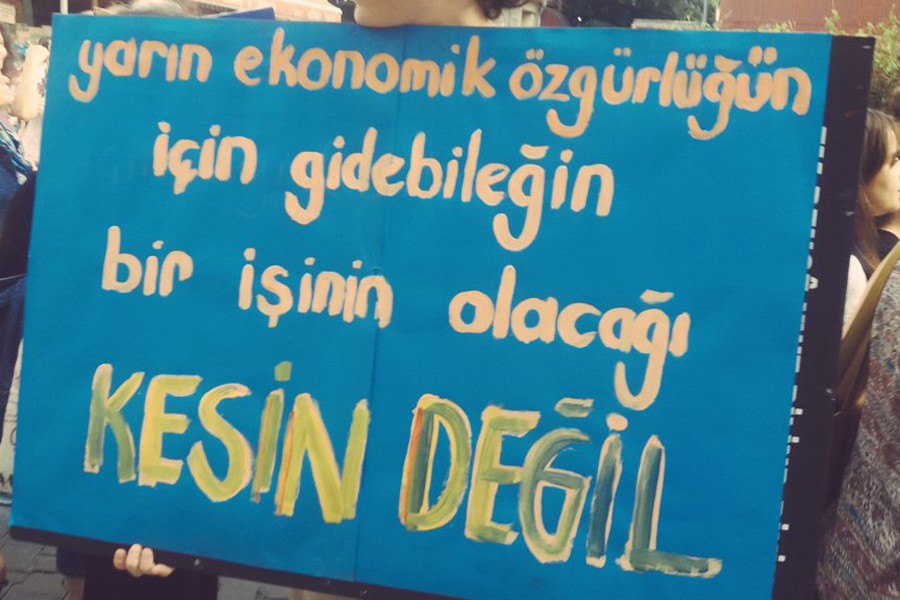 yarın ekonomik özgürlüğün
için gidebileğin
bir işinin olacağı
KESİN DEĞİL